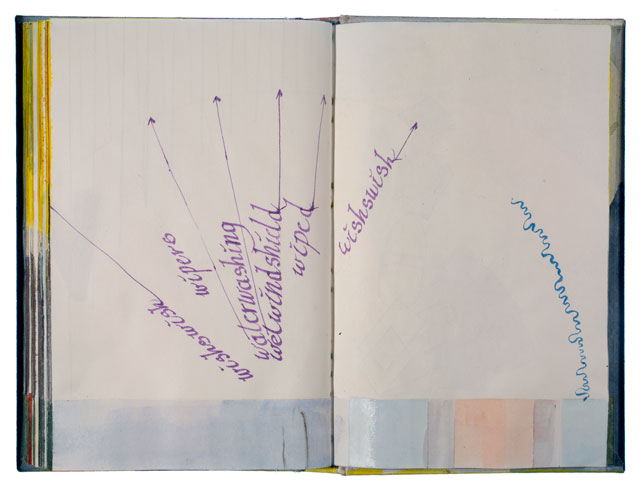 wishswish
wipers
waterwashing
wetwindshield
wiped
wishswish